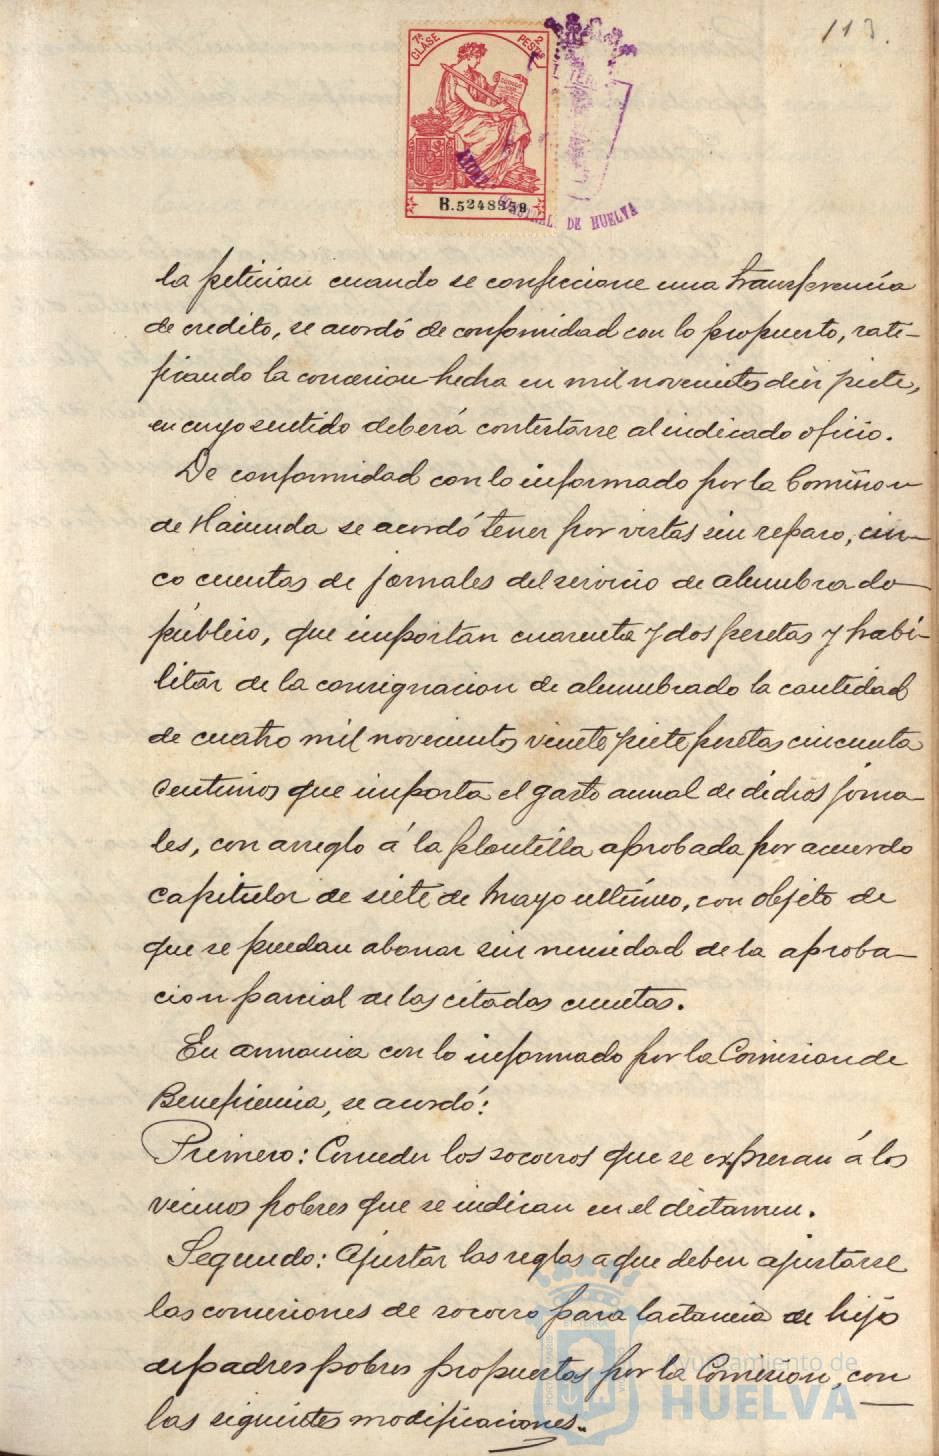 113.
7ª CLASE 2 PESTAS
B.5248359
DE HUELVA
la peticion cuando se confeccione una transferencia
de credito, se acordó de conformidad con lo propuesto, rati-
ficando la concesion hecha en mil novecientos diez siete,
en cuyo sentido deberá contestarse al indicado oficio.
De conformidad con lo informado por la Comision
de Hacienda se acordó tener por vistas sin reparo, cin-
co cuentas de jornales del servicio de alumbrado
público, que importan cuarenta y dos pesetas y habi-
litar de la consignacion de alumbrado la cantidad
de cuatro mil novecientos veinte siete pesetas cincuenta
centimos que importa el gasto anual de dichos jorna-
les, con arreglo á la plantilla aprobada por acuerdo
capitular de siete de Mayo ultimo, con objeto de
que se puedan abonar sin necesidad de la aproba-
cion parcial de las citadas cuentas.
En armonia con lo informado por la Comision de
Beneficencia, se acordó:
Primero: Conceder los socorros que se expresan á los
vecinos pobres que se indican en el dictamen.
Segundo: Ajustar las reglas a que deben ajustarse
las concesiones de socorro para lactancia de hijos
de padres pobres propuestas por la Comision, con
las siguientes modificaciones.
Ayuntamiento de
HUELVA